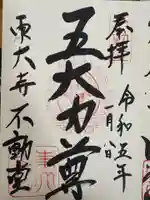 奉拝
令和五年
一月八日
五大力尊
東大寺 不動堂